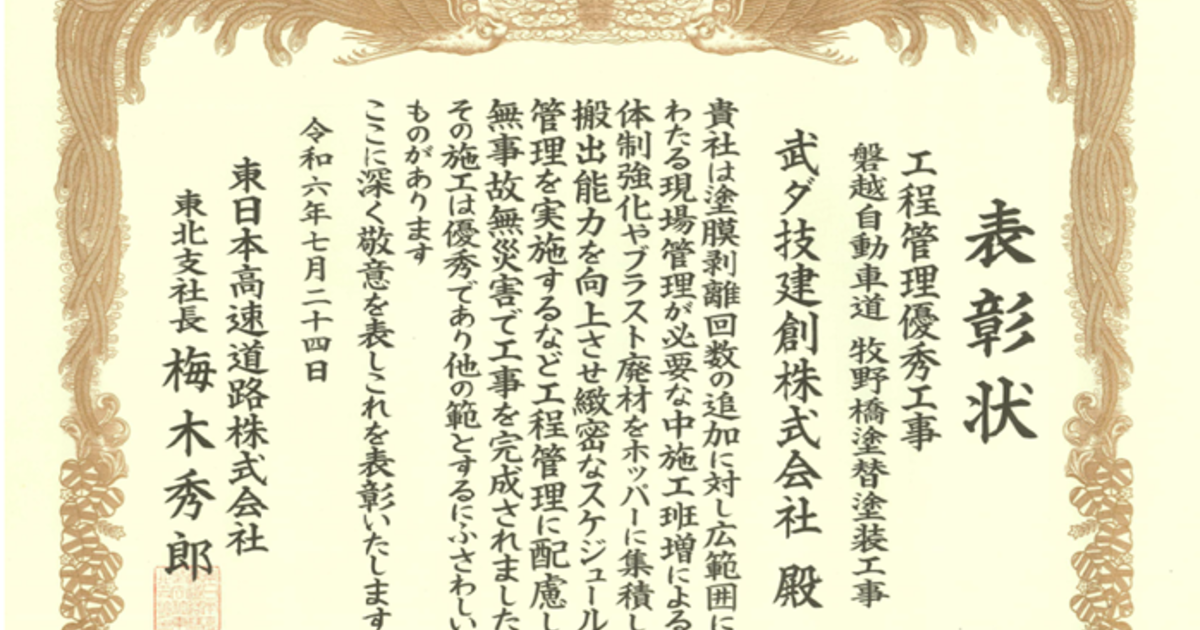 表彰状
工程管理優秀工事
磐越自動車道 牧野橋塗替塗装工事
武ダ技建創株式会社 殿
貴社は塗膜剥離回数の追加に対し広範囲に
わたる現場管理が必要な中施工班増による
体制強化やブラスト廃材をホッパーに集積し
搬出能力を向上させ緻密なスケジュール
管理を実施するなど工程管理に配慮し
無事故無災害で工事を完成されました
その施工は優秀であり他の範とするにふさわしい
ものがあります
ここに深く敬意を表しこれを表彰いたします
令和六年七月二十四日
東日本高速道路株式会社
東北支社長 梅木秀郎